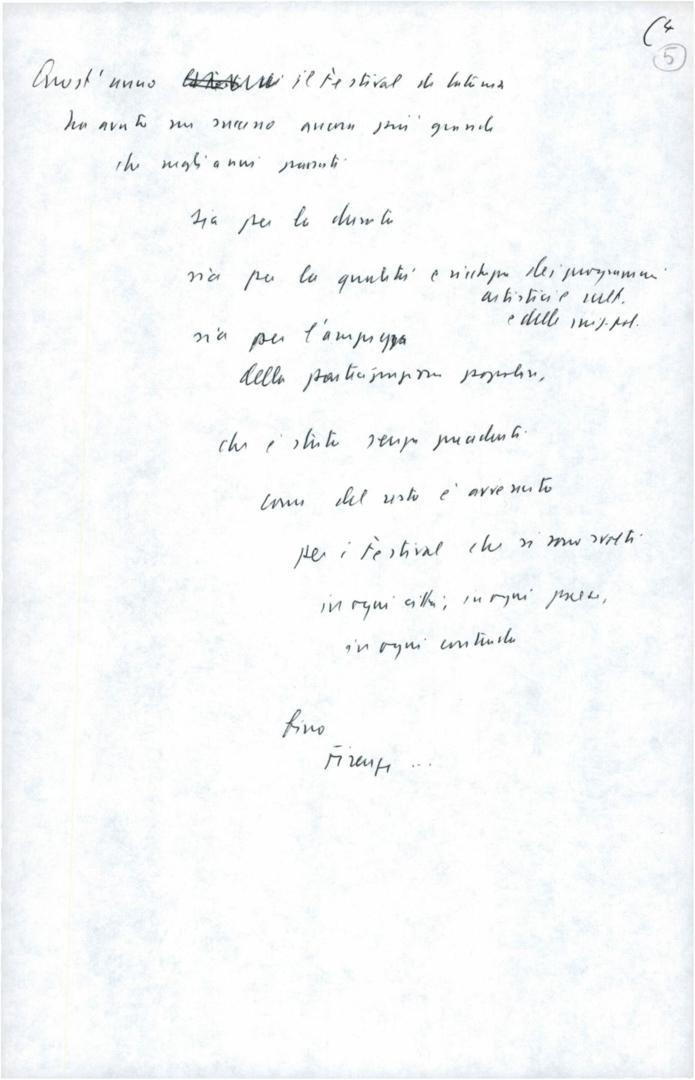 (4
5
Quest'anno il Festival di Latina
ha avuto un successo ancora più grande
che negli anni passati
sia per la durata
sia per la qualità e ricchezza dei programmi
artistici e cult.
e delle iniz. pol.
sia per l'ampiezza
della partecipazione popolare,
che è stata senza precedenti
come del resto è avvenuto
per i Festival che si sono svolti
in ogni città, in ogni paese,
in ogni contrada
fino
Firenze ...